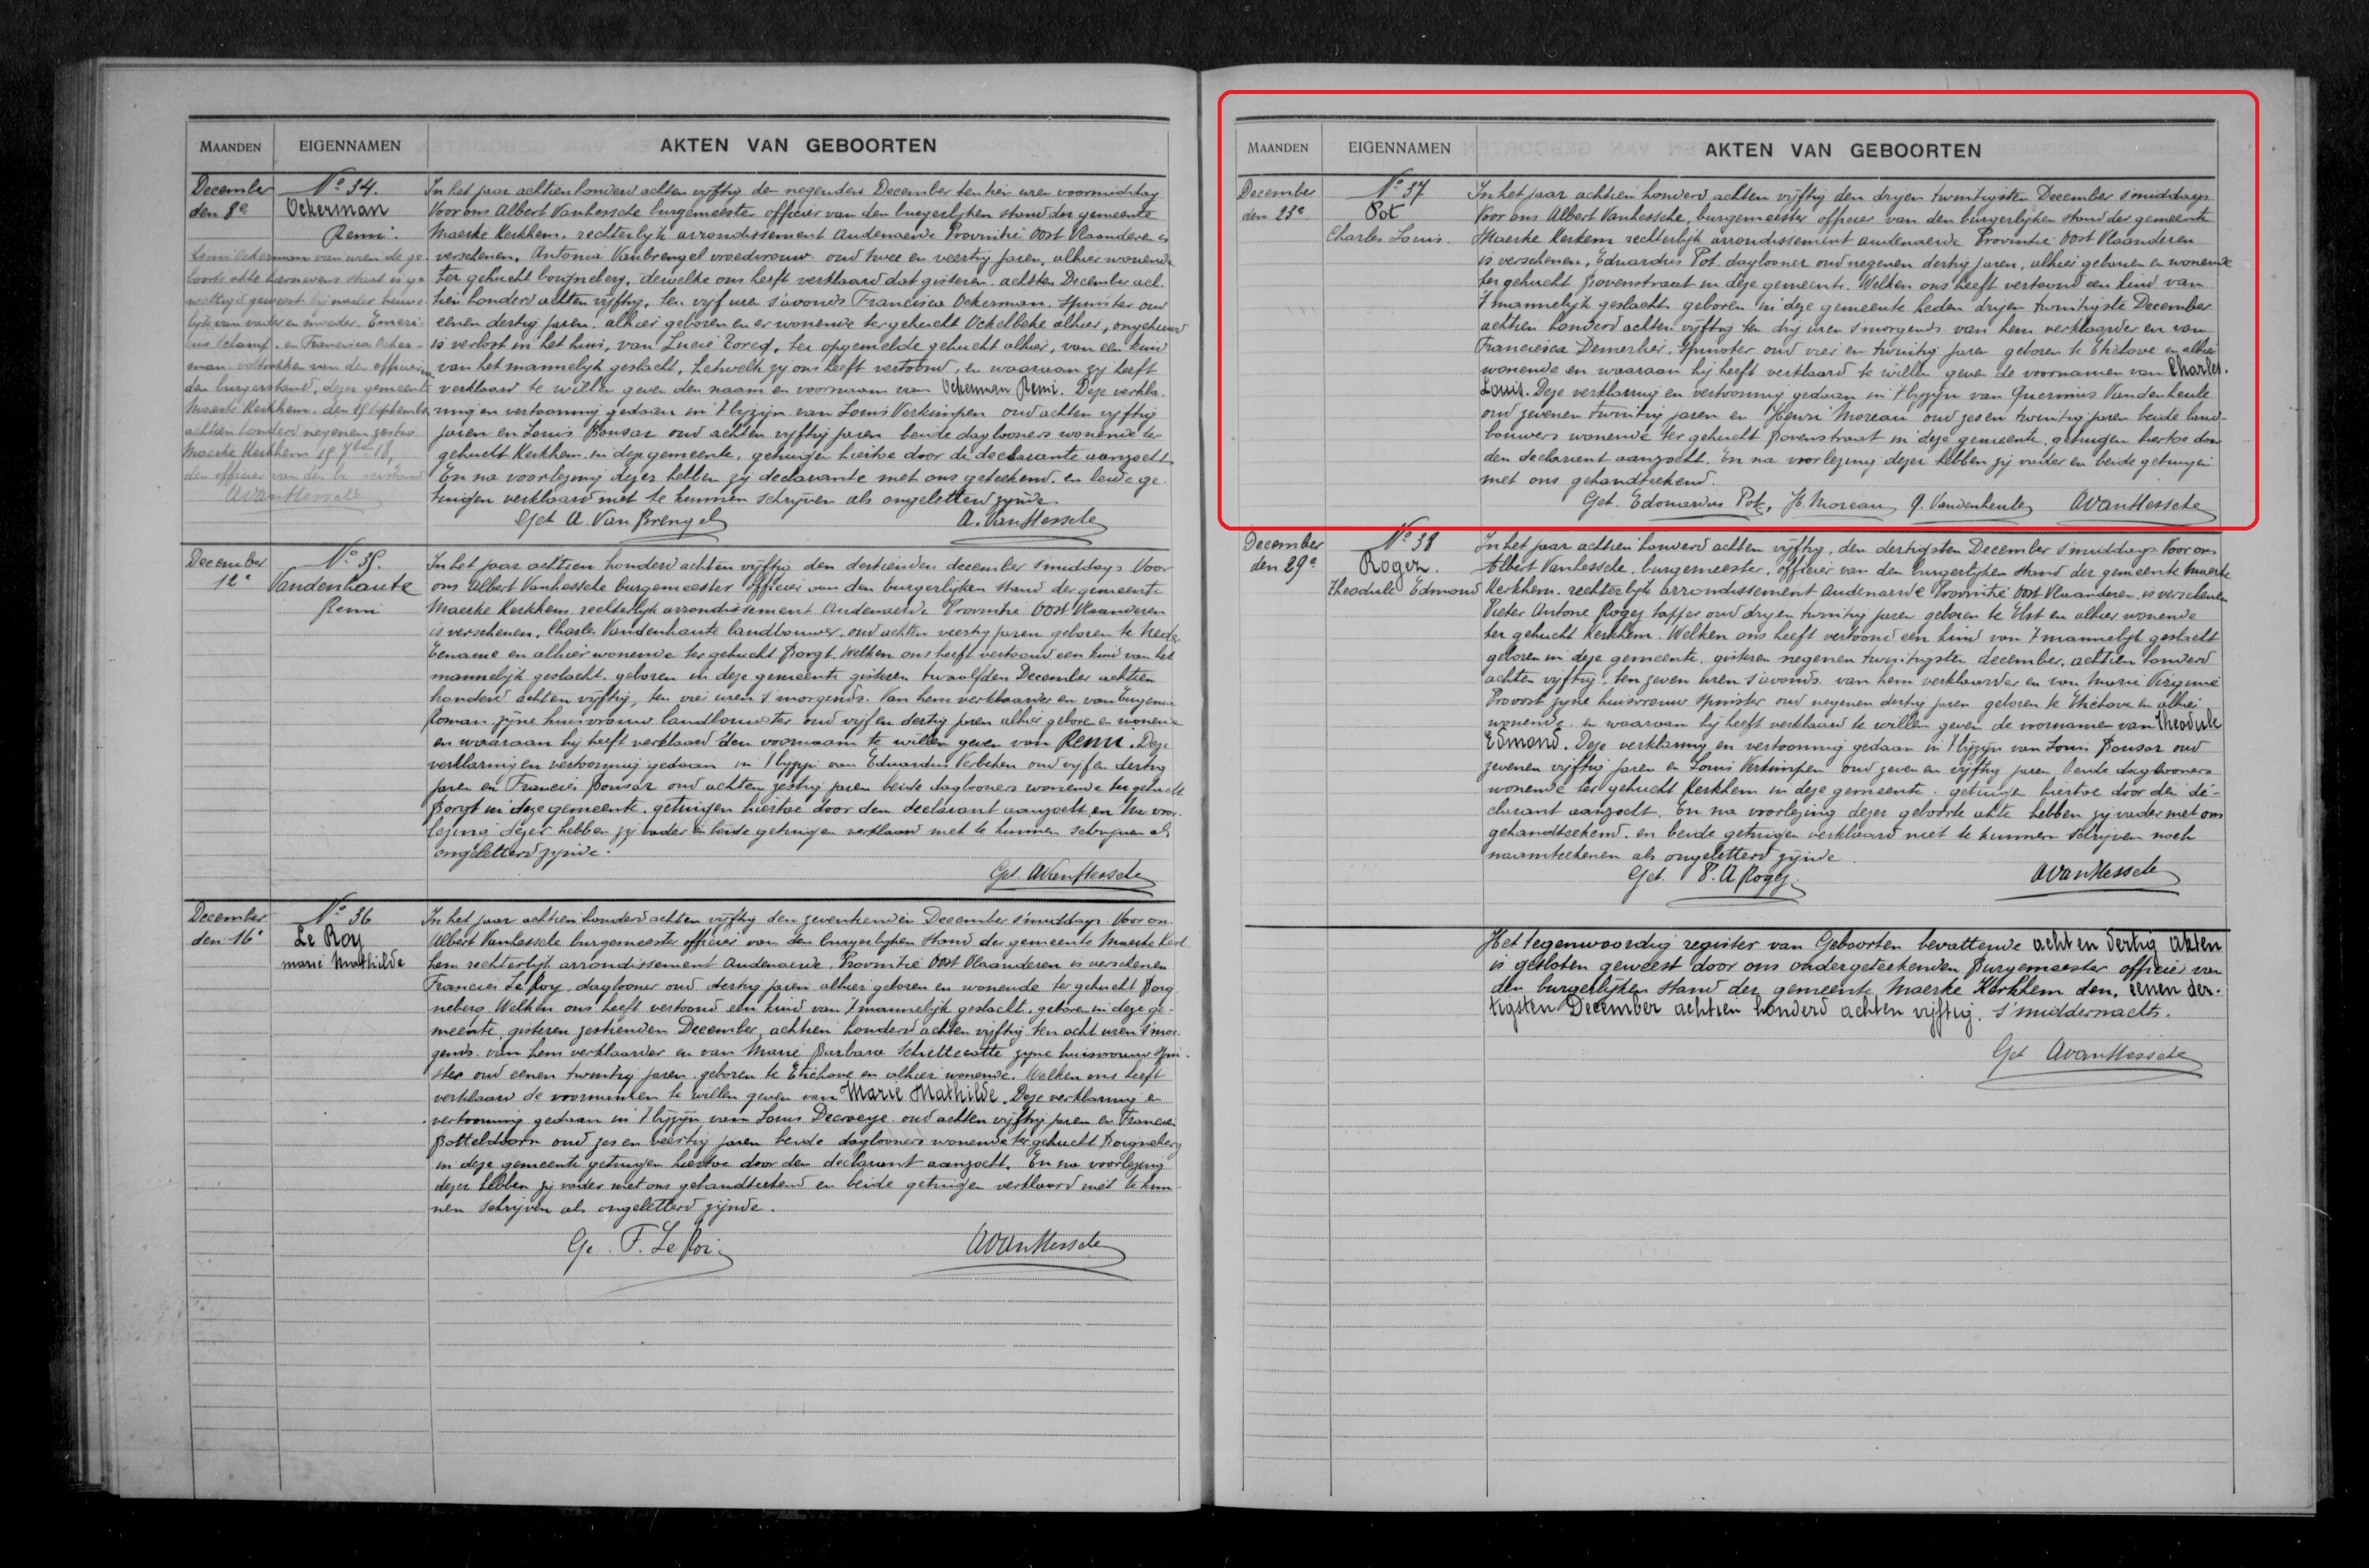 MAANDEN EIGENNAMEN AKTEN VAN GEBOORTEN
December No 34. In het jaar achtien honderd achten vyftig den negenden December ten tien uren voormiddag
den 8e Ockerman Voor ons Albert Vanhessche burgemeester officier van den burgerlyken stand der gemeente
Remi. Maerke Kerkhem. rechterlyk arrondissement Audenaerde Provintie Oost Vlaanderen is
verschenen, Antonia Vanbrengel vroedvrouw oud twee en veertig jaren, alhier wonende
ter gehucht boigneberg, dewelke ons heeft verklaard dat gisteren achtsten December ach-
tien honderd achten vyftig, ten vyf uren s'avonds Francisca Ockerman. spinster oud
eenen dertig jaren. alhier geboren en er wonende ter gehucht Ockelbeke alhier, ongehuwd
is verlost in het huis, van Lucie , ter opgemelde gehucht alhier, van een kind
van het mannelyk geslacht, hetwelk zy ons heeft vertoond, en waaraan zy heeft
verklaard te willen geven den naam en voornaam van Ockerman Remi. Deze verkla-
ring en vertooning gedaan in 't byzyn van Louis Verkimpen oud achten vyftig
jaren en Louis Bousar oud achten vyftig jaren beide daglooners wonende ter
gehucht Kerkhem in deze gemeente, getuigen hiertoe door de declarante aanzocht
En na voorlezing dezer hebben zy declarante met ons geteekend. en beide ge-
tuigen verklaard niet te kunnen schryven als ongeletterd zynde.
Get A. Van Brengel A. VanHessche
Remi Ockerman van wien de ge-
boorte akte hiernevens staat is ge-
wettigd geweest by nader huwe-
lyk van vader en moeder. Emeri-
cus Schamp. en Francisca Ocker-
man voltrokken van den officier van
den burgerstand, dezer gemeente
Maerke Kerkhem. den 15 September
achtien honderd negenen zestig
Maerke Kerkhem 15 7ber 18,
den officier van den b.
AVanHessche
December No 35. In het jaar achtien honderd achten vyftig den dertienden december s'middags Voor
12e Vandenhaute ons Albert Vanhessche burgemeester officier van den burgerlyken stand der gemeente
Remi Maerke Kerkhem rechterlyk arrondissement Audenaerde Provintie Oost Vlaanderen
is verschenen, Charles Vandenhaute landbouwer, oud achten veertig jaren geboren te Neder
Eename en alhier wonende ter gehucht Borgt. Welken ons heeft vertoond een kind van het
mannelyk geslacht, geboren in deze gemeente gisteren twaalfden December achtien
honderd achten vyftig, ten vier uren s'morgends. Van hem verklaarder en van Eugenia
Roman. zyne huisvrouw landbouwster oud vyf en dertig jaren alhier geboren en wonende
en waaraan hy heeft verklaard den voornaam te willen geven van Remi. Deze
verklaring en vertooning gedaan in 't byzyn van Eduardus Verbeken oud vyf en dertig
jaren en Francies Bousar oud achten zestig jaren beide daglooners wonende ter gehucht
Borgt in deze gemeente. getuigen hiertoe door den declarant aanzocht en Na voor-
lezing dezer hebben zy vader en beide getuigen verklaard niet te kunnen schryven als
ongeletterd zynde.
Get. AVanHessche
December No 36 In het jaar achtien honderd achten vyftig den zeventienden December s'middags Voor ons
den 16e Le Roy Albert Vanhessche burgemeester officier van den burgerlyken stand der gemeente Maerke Kerk-
marie Mathilde hem rechterlyk arrondissement Audenaerde. Provintie Oost Vlaanderen is verschenen
Francies Le Roy, daglooner oud dertig jaren alhier geboren en wonende ter gehucht Borg
neberg. Welken ons heeft vertoond een kind van 't mannelyk geslacht. geboren in deze ge-
meente gisteren zestienden December, achtien honderd achten vyftig ten acht uren s'mor-
gends. van hem verklaarder en van Marie Barbara Schelleratte zyne huisvrouw spin-
ster oud eenen twintig jaren geboren te Etichove en alhier wonende. Welken ons heeft
verklaard de voornamen te willen geven van Marie Mathilde. Deze verklaring en
vertooning gedaan in 't byzyn van Louis Decroeye oud achten vyftig jaren en Francies
Botteldoorn oud zes en veertig jaren beide daglooners wonende ter gehucht Boigneberg
in deze gemeente getuigen hiertoe door den declarant aanzocht. En na voorlezing
dezer hebben zy vader met ons gehandteekend en beide getuigen verklaard niet te kun-
nen schryven als ongeletterd zynde.
Ge. F. Le Roi AVanHessche
MAANDEN EIGENNAMEN AKTEN VAN GEBOORTEN
December No 37 In het jaar achtien honderd achten vyftig den dryen twintigsten December s'middags
den 23e Pot Voor ons Albert Vanhessche, burgemeester officier van den burgerlyken stand der gemeente
Charles Louis. Maerke Kerkem rechterlyk arrondissement Audenaerde Provintie Oost Vlaanderen
is verschenen, Eduardus Pot. daglooner oud negenen dertig jaren, alhier geboren en wonende
ter gehucht Bovenstraat in deze gemeente. Welken ons heeft vertoond een kind van
't mannelyk geslacht. geboren in deze gemeente heden dryen twintigste December
achtien honderd achten vyftig ten dry uren s'morgends van hem verklaarder en van
Francisca Demerlier, spinster oud vier en twintig jaren geboren te Etichove en alhier
wonende en waaraan hy heeft verklaard te willen geven de voornamen van Charles.
Louis. Deze verklaring en vertooning gedaan in 't byzyn van Guerinus Vandenheule
oud zevenen twintig jaren en Henri Moreau oud zesen twintig jaren beide land-
bouwers wonende ter gehucht Bovenstraat in deze gemeente, getuigen hiertoe door
den declarant aanzocht. En na voorlezing dezer hebben zy vader en beide getuigen
met ons gehandteekend.
Get. Edouardus Pot, H. Moreau G. Vandenheule AVanHessche
December No 38 In het jaar achtien honderd achten vyftig, den dertigsten December s'middags Voor ons
den 29e Rogez. Albert Vanhessche, burgemeester, officier van den burgerlyken stand der gemeente Maerke
Theodule Edmond Kerkhem. rechterlyk arrondissement Audenaerde Provintie Oost Vlaanderen is verschenen
Pieter Antone Rogez tapper oud dryen twintig jaren geboren te Elst en alhier wonende
ter gehucht Kerkhem. Welken ons heeft vertoond een kind van 't mannelyk geslacht
geboren in deze gemeente, gisteren negenen twintigsten december, achtien honderd
achten vyftig. ten zeven uren s'avonds. van hem verklaarder en van Marie Virginie
Provost zyne huisvrouw spinster oud negenen dertig jaren geboren te Etichove en alhier
wonende. en waaraan hy heeft verklaard te willen geven de voornamen van Theodule
Edmond. Deze verklaring en vertooning gedaan in 't byzyn van Louis Bousar oud
zevenen vyftig jaren en Louis Verkimpen oud zeven en vyftig jaren beide daglooners
wonende ter gehucht Kerkhem in deze gemeente. getuigen hiertoe door den de-
clarant aanzocht. En na voorlezing dezer geboorte akte hebben zy vader met ons
gehandteekend. en beide getuigen verklaard niet te kunnen schryven noch
naamteekenen als ongeletterd zynde.
Get. P. A Rogez. AVanHessche
Het tegenwoordig register van Geboorten bevattende acht en dertig akten
is gesloten geweest door ons ondergeteekenden Burgemeester officier van
den burgerlyken stand der gemeente Maerke Kerkhem den, eenen der-
tigsten December achtien honderd achten vyftig. s'middernachts.
Get AvanHessche